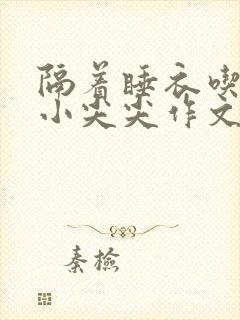 隔着睡衣喫
小尖尖作文
秦檢